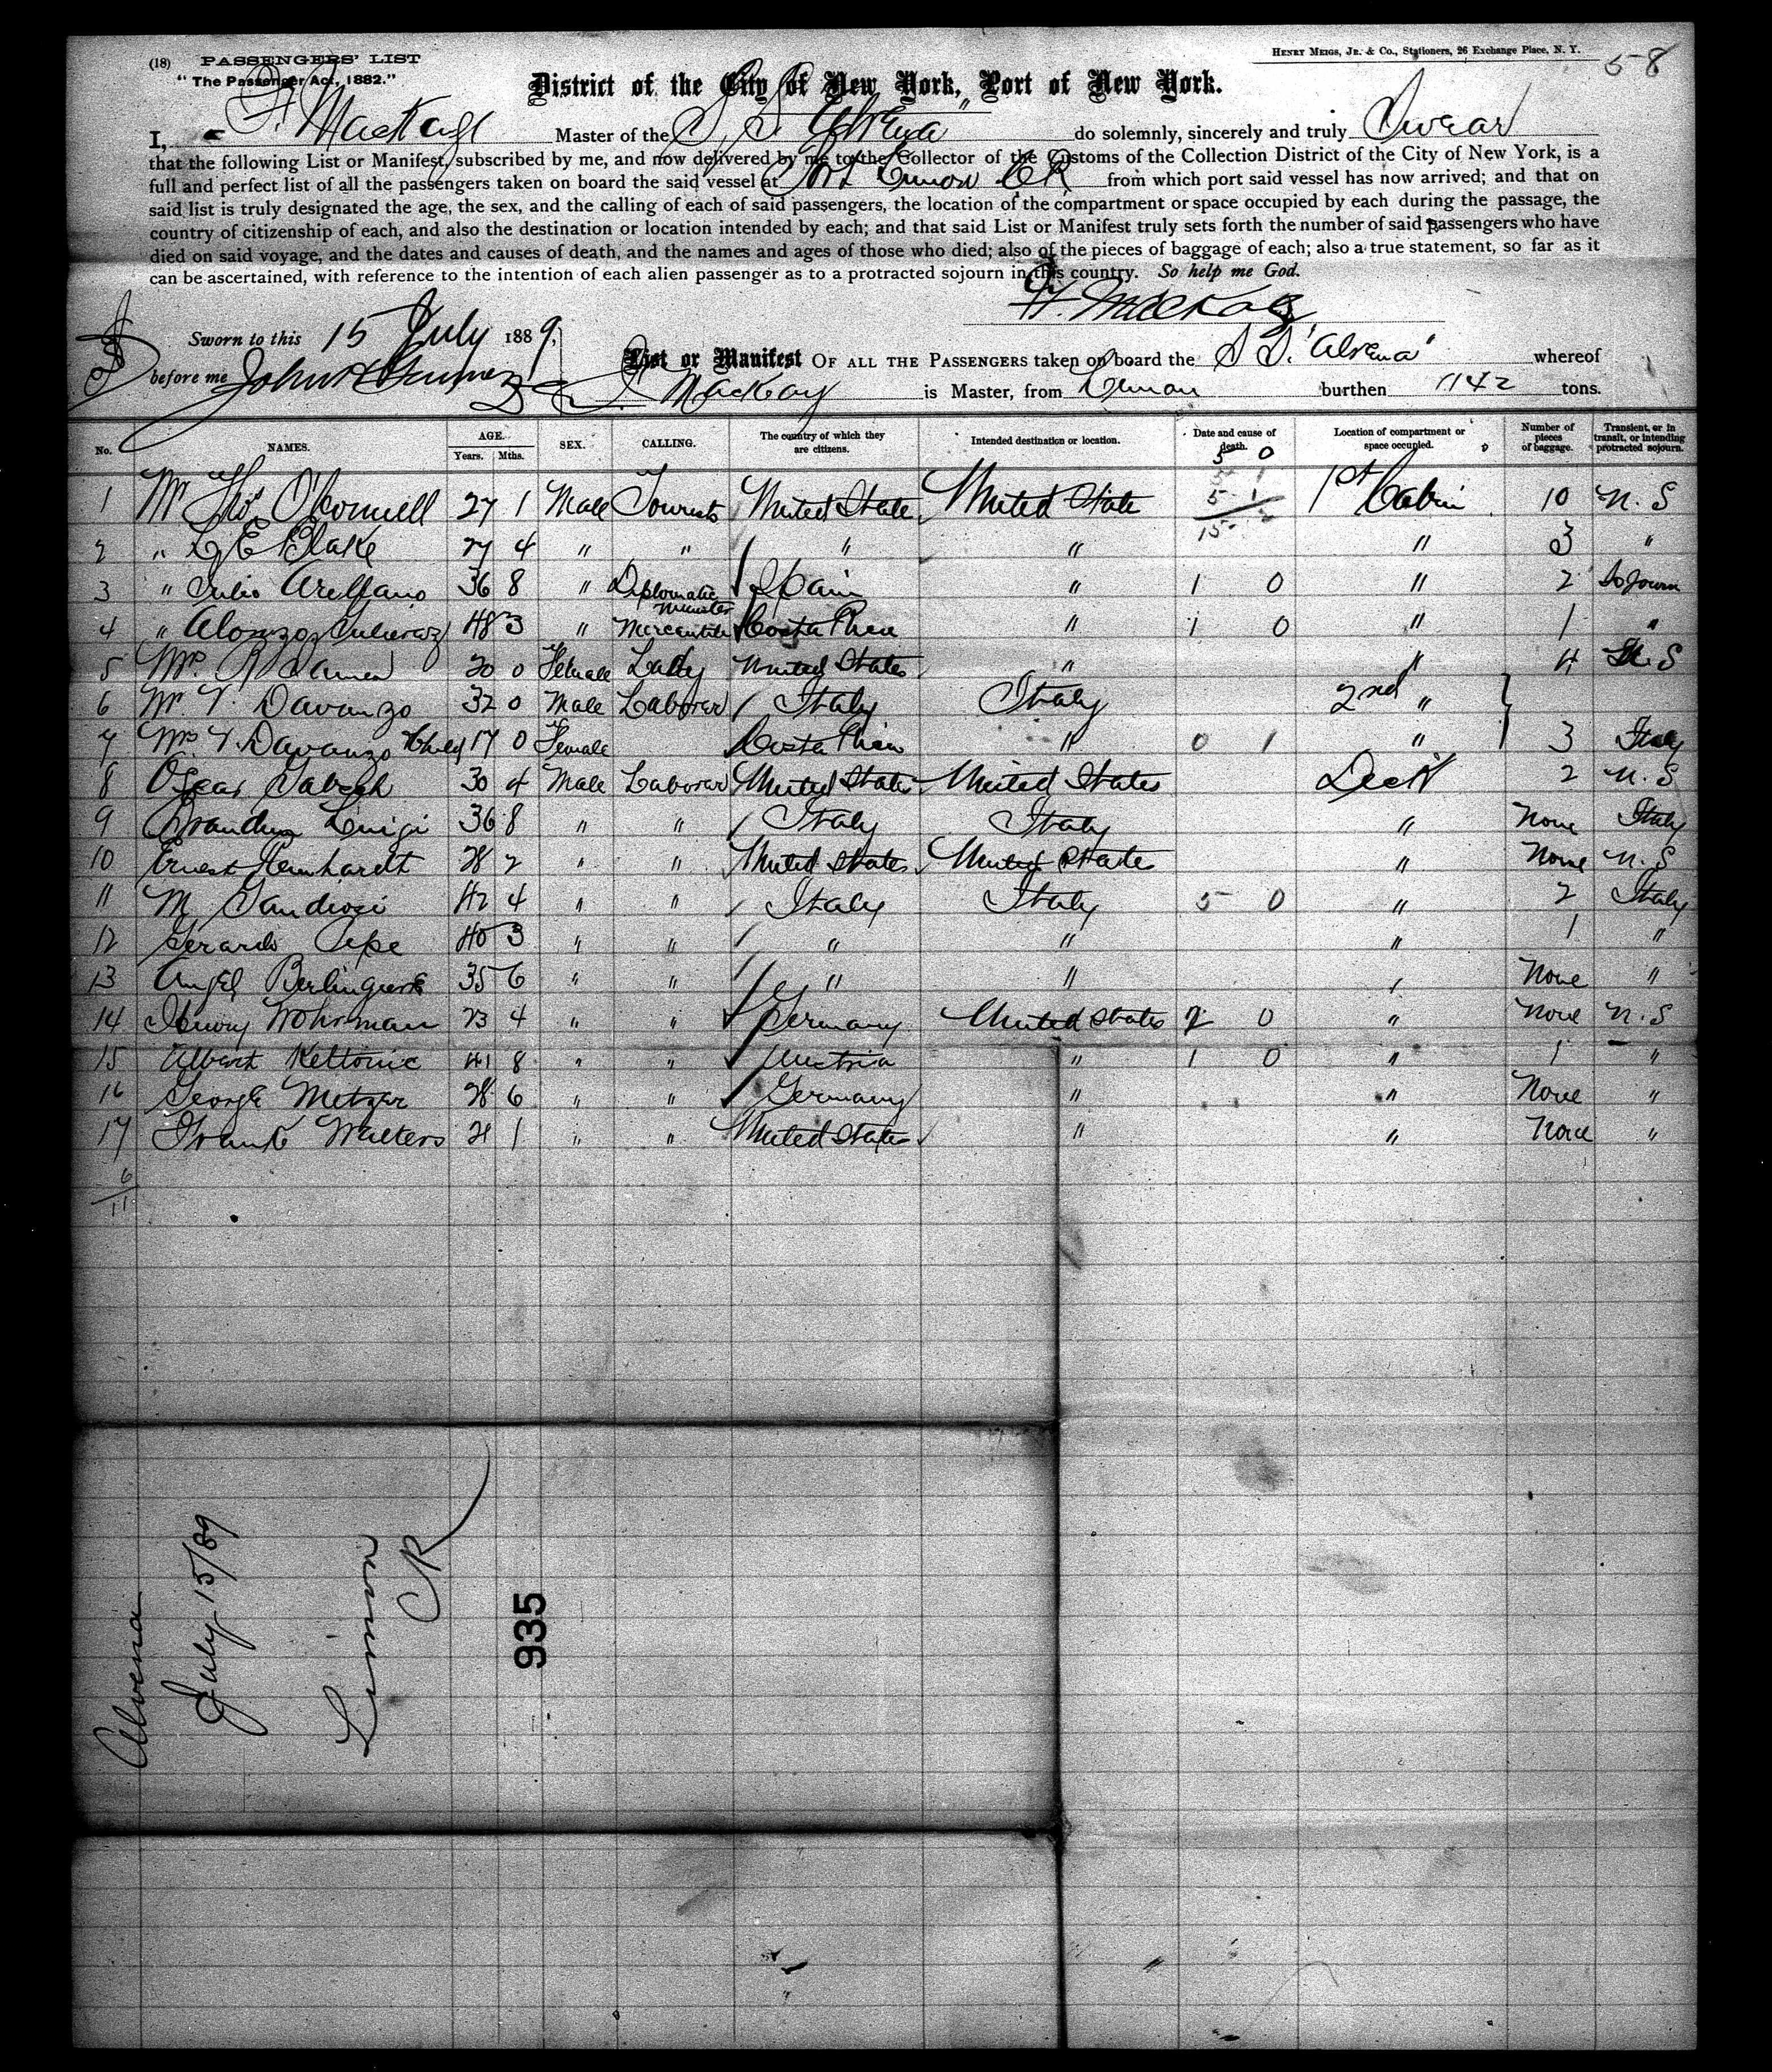 (18) PASSENGERS' LIST
HENRY MEIGS, JR. & CO., Stationers, 26 Exchange Place, N. Y. 58
"The Passenger Act, 1882."
District of the City of New York, Port of New York.
I, F. Mackay Master of the S. S. "Alvena" do solemnly, sincerely and truly Swear
that the following List or Manifest, subscribed by me, and now delivered by me to the Collector of the Customs of the Collection District of the City of New York, is a
full and perfect list of all the passengers taken on board the said vessel at Port Limon CR from which port said vessel has now arrived; and that on
said list is truly designated the age, the sex, and the calling of each of said passengers, the location of the compartment or space occupied by each during the passage, the
country of citizenship of each, and also the destination or location intended by each; and that said List or Manifest truly sets forth the number of said passengers who have
died on said voyage, and the dates and causes of death, and the names and ages of those who died; also of the pieces of baggage of each; also a true statement, so far as it
can be ascertained, with reference to the intention of each alien passenger as to a protracted sojourn in this country. So help me God.
Mackay
Sworn to this 15 July 1889,
before me John
List or Manifest OF ALL THE PASSENGERS taken on board the S S. "Alvena" whereof
F. Mackay is Master, from Limon burthen 1142 tons.
No. NAMES. AGE. Years. Mths. SEX. CALLING. The country of which they are citizens. Intended destination or location. Date and cause of death. Location of compartment or space occupied. Number of pieces of baggage. Transient, or in transit, or intending protracted sojourn.
5 0
5 1
15
1 Mr Thos O'Connell 27 1 Male Tourists United State United State 1st Cabin 10 N. S
2 " L E Blake 27 4 " " " " " 3 "
3 " Julio Arellano 36 8 " Diplomatic Minister Spain " 1 0 " 2 Sojourn
4 " Alonzo Gutierrez 48 3 " Mercantile Costa Rica " 1 0 " 1 "
5 Mrs. R 20 0 Female Lady United States " " 4 N. S
6 Mr. V. Davanzo 32 0 Male Laborer Italy Italy 2nd "
7 Mrs V. Davanzo & Child 17 0 Female Costa Rica " 0 1 " 3 Italy
8 Oscar 30 4 Male Laborer United States United States Deck 2 N. S
9 Luigi 36 8 " " Italy Italy " None Italy
10 Ernest Reinhardt 28 2 " " United States United State " None N. S
11 M. 42 4 " " Italy Italy 5 0 " 2 Italy
12 Gerardo Pepe 40 3 " " " " " 1 "
13 Angel 35 6 " " " " " None "
14 Henry Wohrman 23 4 " " Germany United States 2 0 " None N. S
15 Albert 41 8 " " Austria " 1 0 " 1 "
16 George Metzger 28 6 " " Germany " " None "
17 Frank Walters 21 1 " " United States " " None "
6
11
Alvena
July 15/89
Limon
CR
935